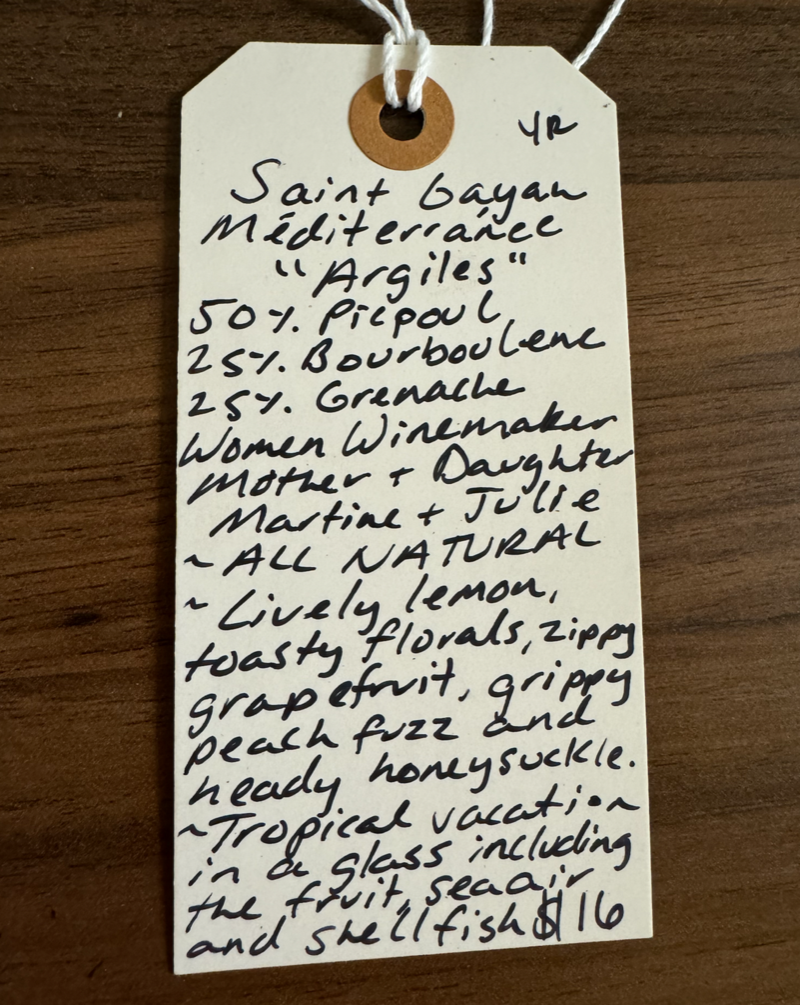 YR
Saint Gayan
Méditerranée
"Argiles"
50% Picpoul
25% Bourboulenc
25% Grenache
Women Winemaker
Mother + Daughter
Martine + Julie
~ ALL NATURAL
~ Lively lemon,
toasty florals, zippy
grapefruit, grippy
peach fuzz and
heady honeysuckle.
~Tropical vacation
in a glass including
the fruit, sea air
and shellfish $16